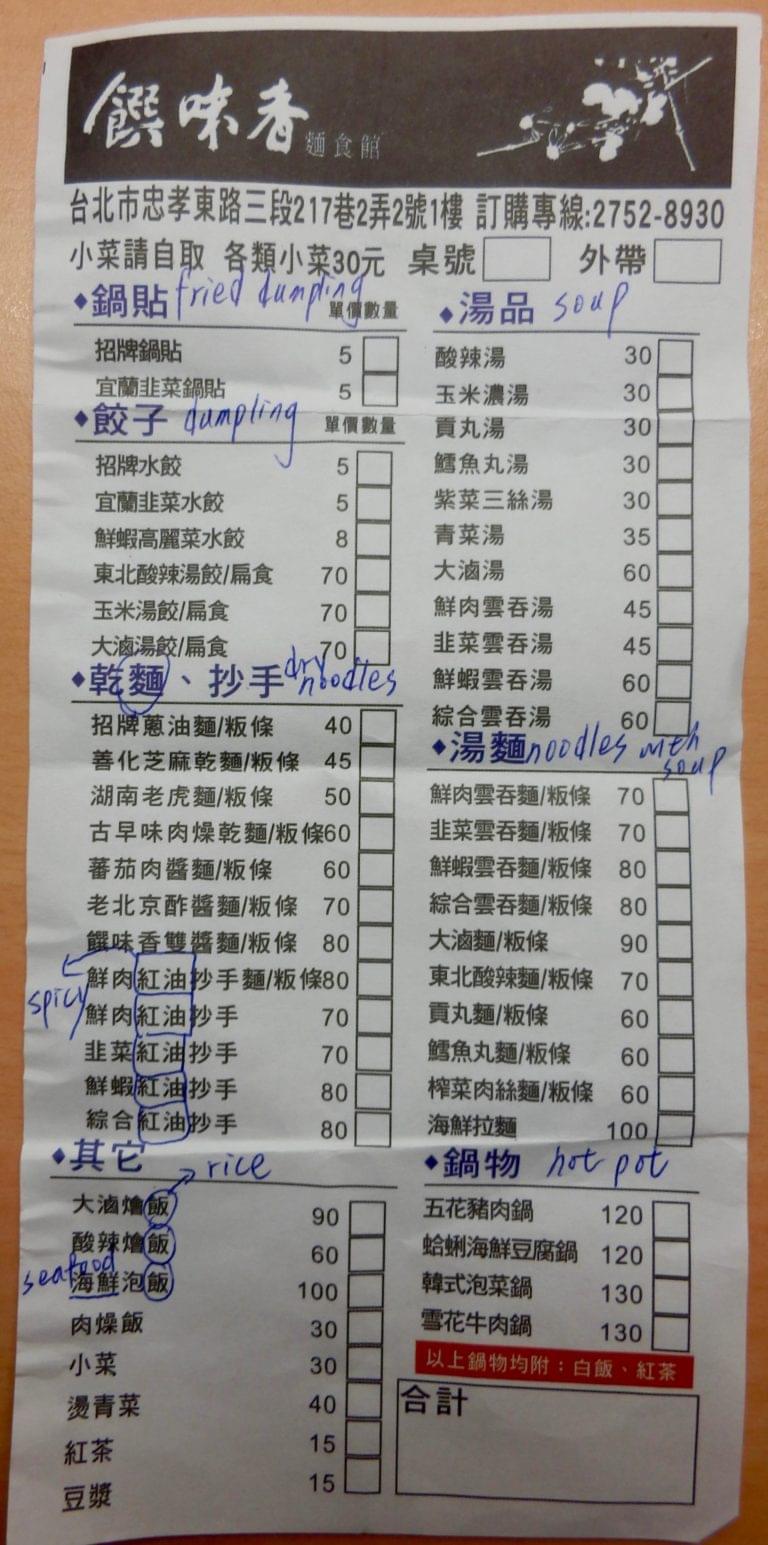 饌味香 麵食館
台北市忠孝東路三段217巷2弄2號1樓 訂購專線:2752-8930
小菜請自取 各類小菜30元 桌號 外帶
◆鍋貼 fried dumpling 單價數量
招牌鍋貼 5
宜蘭韭菜鍋貼 5
◆餃子 dumpling 單價數量
招牌水餃 5
宜蘭韭菜水餃 5
鮮蝦高麗菜水餃 8
東北酸辣湯餃/扁食 70
玉米湯餃/扁食 70
大滷湯餃/扁食 70
◆乾麵、抄手 dry noodles
招牌蔥油麵/粄條 40
善化芝麻乾麵/粄條 45
湖南老虎麵/粄條 50
古早味肉燥乾麵/粄條60
蕃茄肉醬麵/粄條 60
老北京酢醬麵/粄條 70
饌味香雙醬麵/粄條 80
鮮肉紅油抄手麵/粄條80
spicy
鮮肉紅油抄手 70
韭菜紅油抄手 70
鮮蝦紅油抄手 80
綜合紅油抄手 80
◆其它
rice
大滷燴飯 90
酸辣燴飯 60
seafood
海鮮泡飯 100
肉燥飯 30
小菜 30
燙青菜 40
紅茶 15
豆漿 15
◆湯品 soup
酸辣湯 30
玉米濃湯 30
貢丸湯 30
鱈魚丸湯 30
紫菜三絲湯 30
青菜湯 35
大滷湯 60
鮮肉雲吞湯 45
韭菜雲吞湯 45
鮮蝦雲吞湯 60
綜合雲吞湯 60
◆湯麵 noodles with soup
鮮肉雲吞麵/粄條 70
韭菜雲吞麵/粄條 70
鮮蝦雲吞麵/粄條 80
綜合雲吞麵/粄條 80
大滷麵/粄條 90
東北酸辣麵/粄條 70
貢丸麵/粄條 60
鱈魚丸麵/粄條 60
榨菜肉絲麵/粄條 60
海鮮拉麵 100
◆鍋物 hot pot
五花豬肉鍋 120
蛤蜊海鮮豆腐鍋 120
韓式泡菜鍋 130
雪花牛肉鍋 130
以上鍋物均附：白飯、紅茶
合計